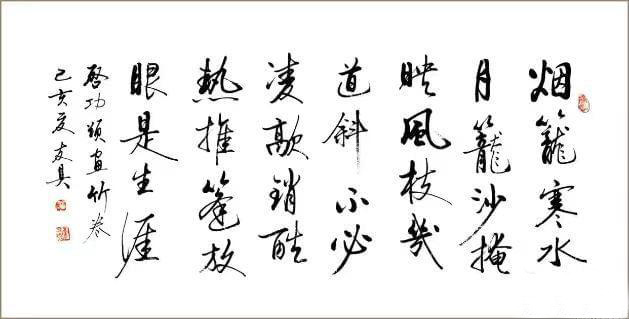 烟籠寒水
月籠沙掩
映風枝幾
道斜不必
凌歊銷酷
熱推篷放
眼是生涯
啓功題畫竹卷
己亥夏